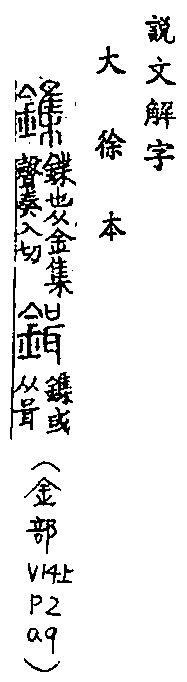 說文解字
大徐本
鏶 鍱也从金集
聲秦入切
鍓 鏶或
从咠
（金部V14上P2a9）